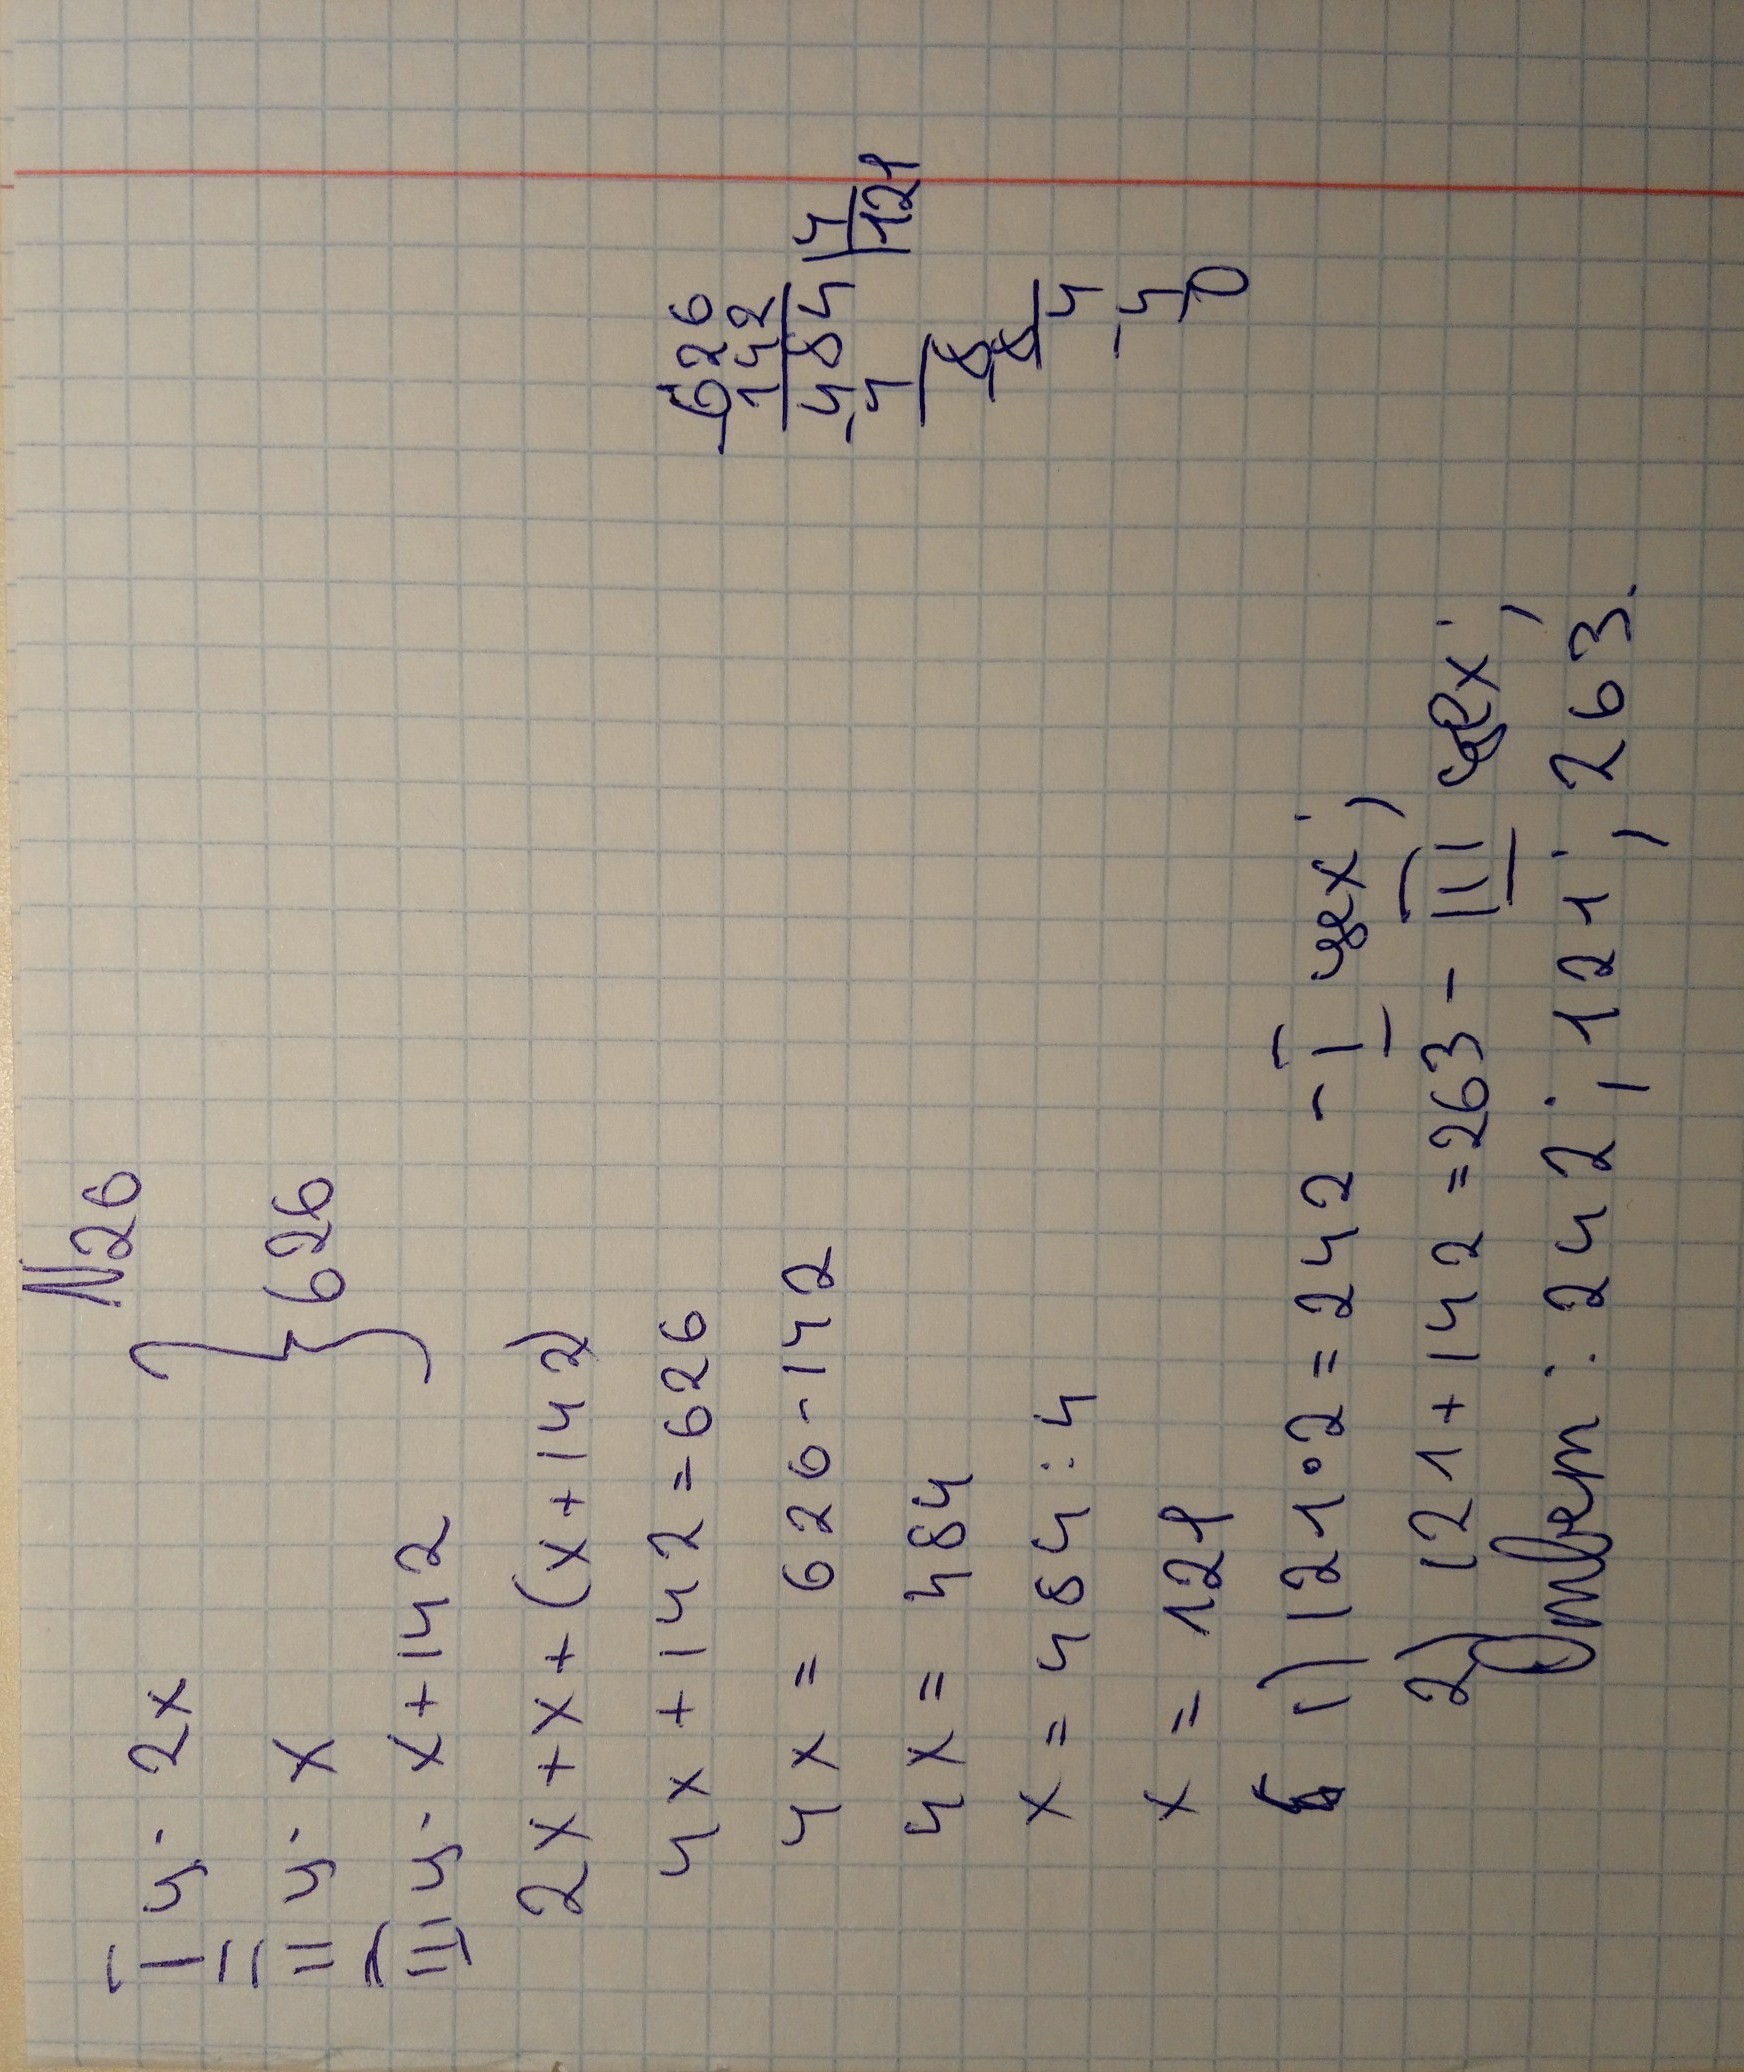 N26
I ц. 2x
II ц. x } 626
III ц. x+142
2x+x+(x+142)
4x+142=626
4x = 626-142
4x = 484
x = 484:4
x = 121
1) 121•2=242 - I цех;
2) 121+142=263 - III цех;
Ответ: 242; 121; 263.
626
142
484 | 4
-4 | 121
8
-8
4
-4
0